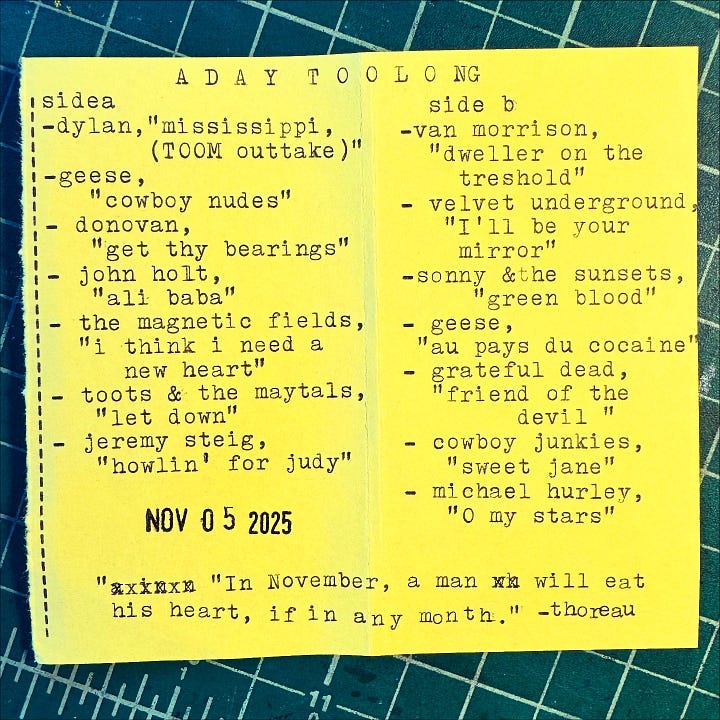 A DAY TOO LONG
sidea
-dylan,"mississippi,
(TOOM outtake)"
-geese,
"cowboy nudes"
- donovan,
"get thy bearings"
- john holt,
"ali baba"
- the magnetic fields,
"i think i need a
new heart"
- toots & the maytals,
"let down"
- jeremy steig,
"howlin' for judy"
side b
-van morrison,
"dweller on the
treshold"
- velvet underground,
"I'll be your
mirror"
-sonny &the sunsets,
"green blood"
- geese,
"au pays du cocaine"
- grateful dead,
"friend of the
devil "
- cowboy junkies,
"sweet jane"
- michael hurley,
"O my stars"
NOV 05 2025
" "In November, a man will eat
his heart, if in any month." -thoreau
11